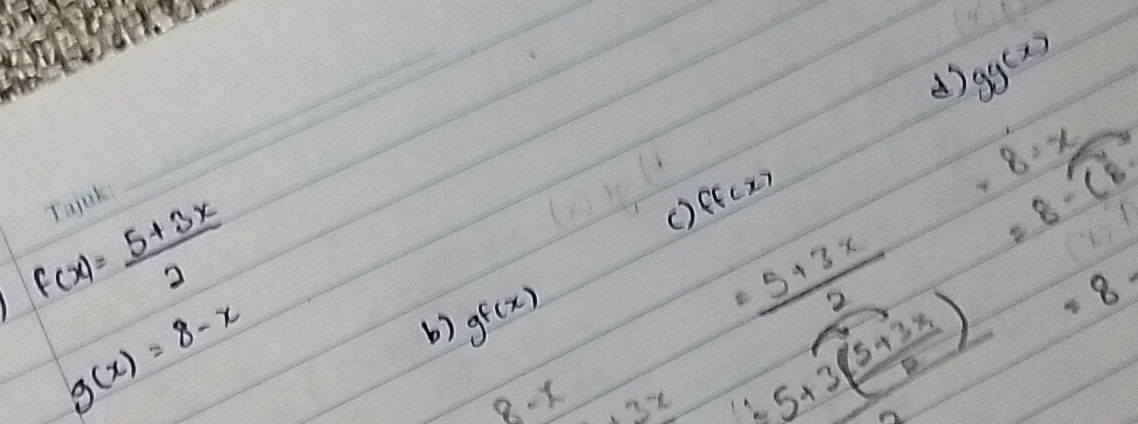 Tajuk:
f(x) = 5+3x / 2
g(x) = 8-x
b) gf(x)
8-x
3x
c) ff(x)
= 5+3x / 2
= 5+3(5+3x / 2) / 2
d) gg(x)
= 8-x
= 8-(8-
= 8-